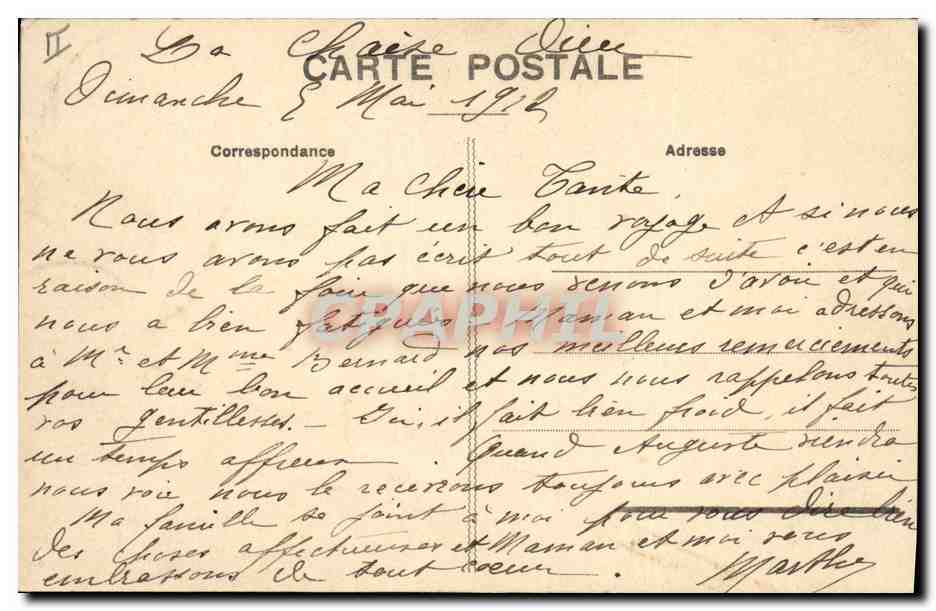 II
La Chaise Dieu
CARTE POSTALE
Dimanche 5 Mai 1912
Correspondance
Adresse
Ma chère Tante,
Nous avons fait un bon voyage et si nous
ne vous avons pas écrit tout de suite c'est en
raison de la foire que nous venons d'avoir et qui
nous a bien fatigués. Maman et moi adressons
à Mr et Mme Bernard nos meilleurs remerciements
pour leur bon accueil et nous nous rappelons toutes
vos gentillesses. — Ici, il fait bien froid, il fait
un temps affreux. Quand Auguste viendra
nous voir nous le recevrons toujours avec plaisir
Ma famille se joint à moi pour vous dire bien
des choses affectueuses et Maman et moi vous
embrassons de tout cœur.
Marthe
CRAPHIL